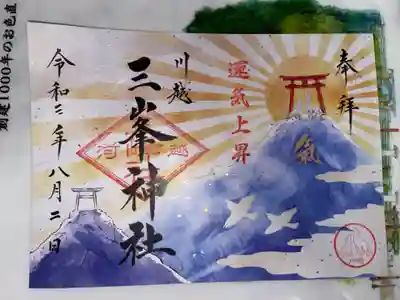 奉拝
運気上昇
氣
川越
三峯神社
令和三年八月二日
創建1000年のお色直